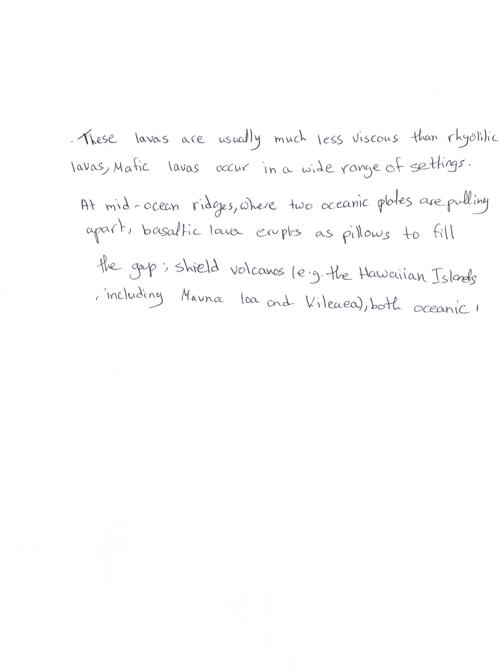 . These lavas are usually much less viscous than rhyolitic
lavas, Mafic lavas occur in a wide range of settings.
At mid-ocean ridges, where two oceanic plates are pulling
apart, basaltic lava erupts as pillows to fill
the gap; shield volcanos (e.g. the Hawaiian Islands
, including Mauna loa and Kileaea), both oceanic